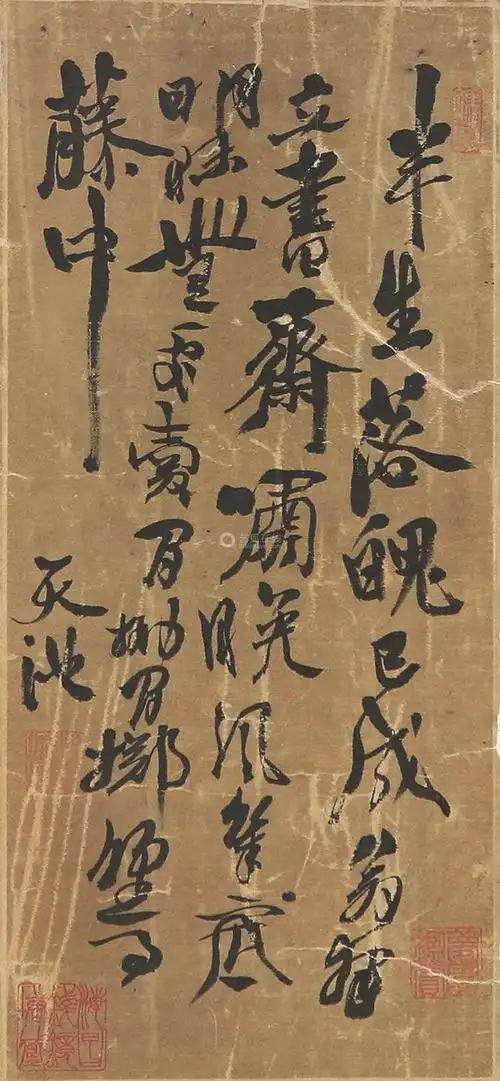 半生落魄已成翁獨
立書齋嘯晚風筆底
明珠無處賣閒拋閒擲野
藤中
天池